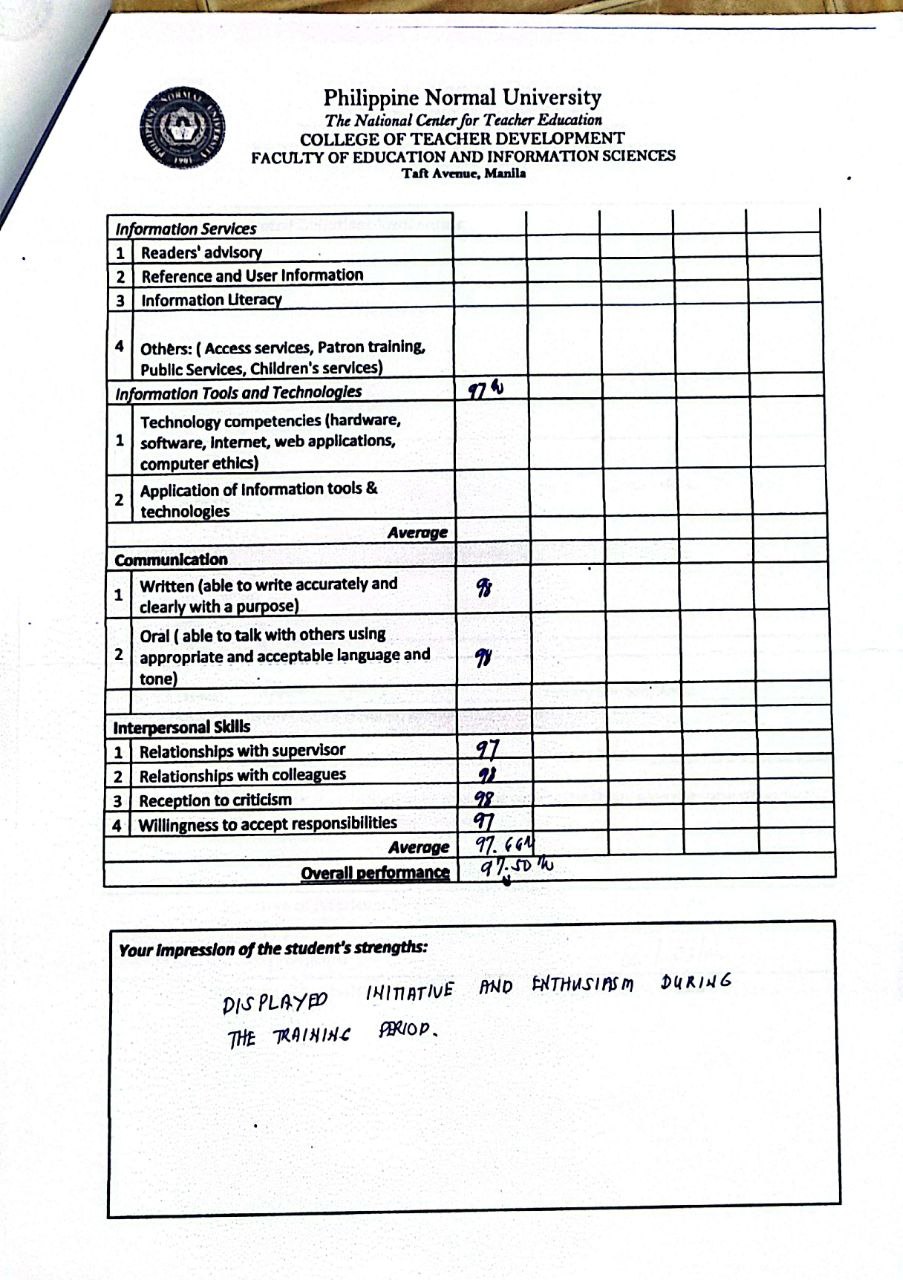 Philippine Normal University
The National Center for Teacher Education
COLLEGE OF TEACHER DEVELOPMENT
FACULTY OF EDUCATION AND INFORMATION SCIENCES
Taft Avenue, Manila
PHILIPPINE NORMAL UNIVERSITY
1901
Information Services
1 Readers' advisory
2 Reference and User Information
3 Information Literacy
4 Others: ( Access services, Patron training,
Public Services, Children's services)
Information Tools and Technologies 97%
1 Technology competencies (hardware,
software, internet, web applications,
computer ethics)
2 Application of Information tools &
technologies
Average
Communication
1 Written (able to write accurately and
clearly with a purpose) 98
2 Oral ( able to talk with others using
appropriate and acceptable language and
tone) 98
Interpersonal Skills
1 Relationships with supervisor 97
2 Relationships with colleagues 98
3 Reception to criticism 98
4 Willingness to accept responsibilities 97
Average 97.66%
Overall performance 97.50%
Your impression of the student's strengths:
DISPLAYED INITIATIVE AND ENTHUSIASM DURING
THE TRAINING PERIOD.